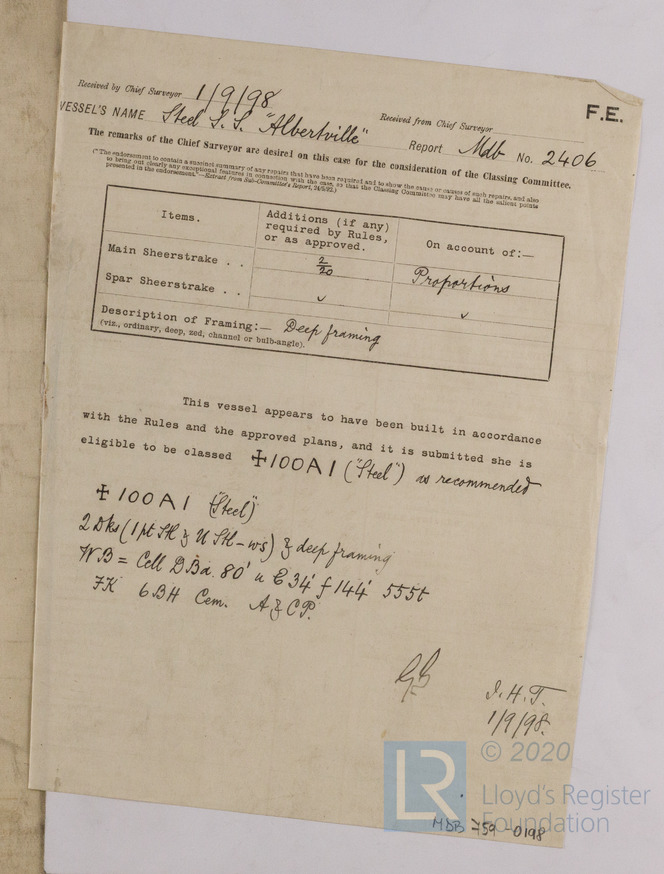 F.E.
Received by Chief Surveyor 1/9/98
Received from Chief Surveyor
VESSEL'S NAME Steel S.S. "Albertville" Report Mdb No. 2406
The remarks of the Chief Surveyor are desired on this case for the consideration of the Classing Committee.
("The endorsement to contain a succinct summary of any repairs that have been required and to show the cause or causes of such repairs, and also
to bring out clearly any exceptional features in connection with the case, so that the Classing Committee may have all the salient points
presented in the endorsement."—Extract from Sub-Committee's Report, 24/5/92.)
Items.
Additions (if any)
required by Rules,
or as approved.
On account of:—
Main Sheerstrake . . 2/20 Proportions
Spar Sheerstrake . . ✓ ✓
Description of Framing:— Deep framing
(viz., ordinary, deep, zed, channel or bulb-angle).
This vessel appears to have been built in accordance
with the Rules and the approved plans, and it is submitted she is
eligible to be classed ✠100A1 ("Steel") as recommended
✠100A1 ("Steel")
2 Dks (1 pt Stl & U Stl-ws) & deep framing
WB = Cell DBa 80' u E 34' f 144' 555t
FK 6BH Cem. A & CP.
J.H.T.
1/9/98.
© 2020
LR
Lloyd's Register
Foundation
MDB 759-0198